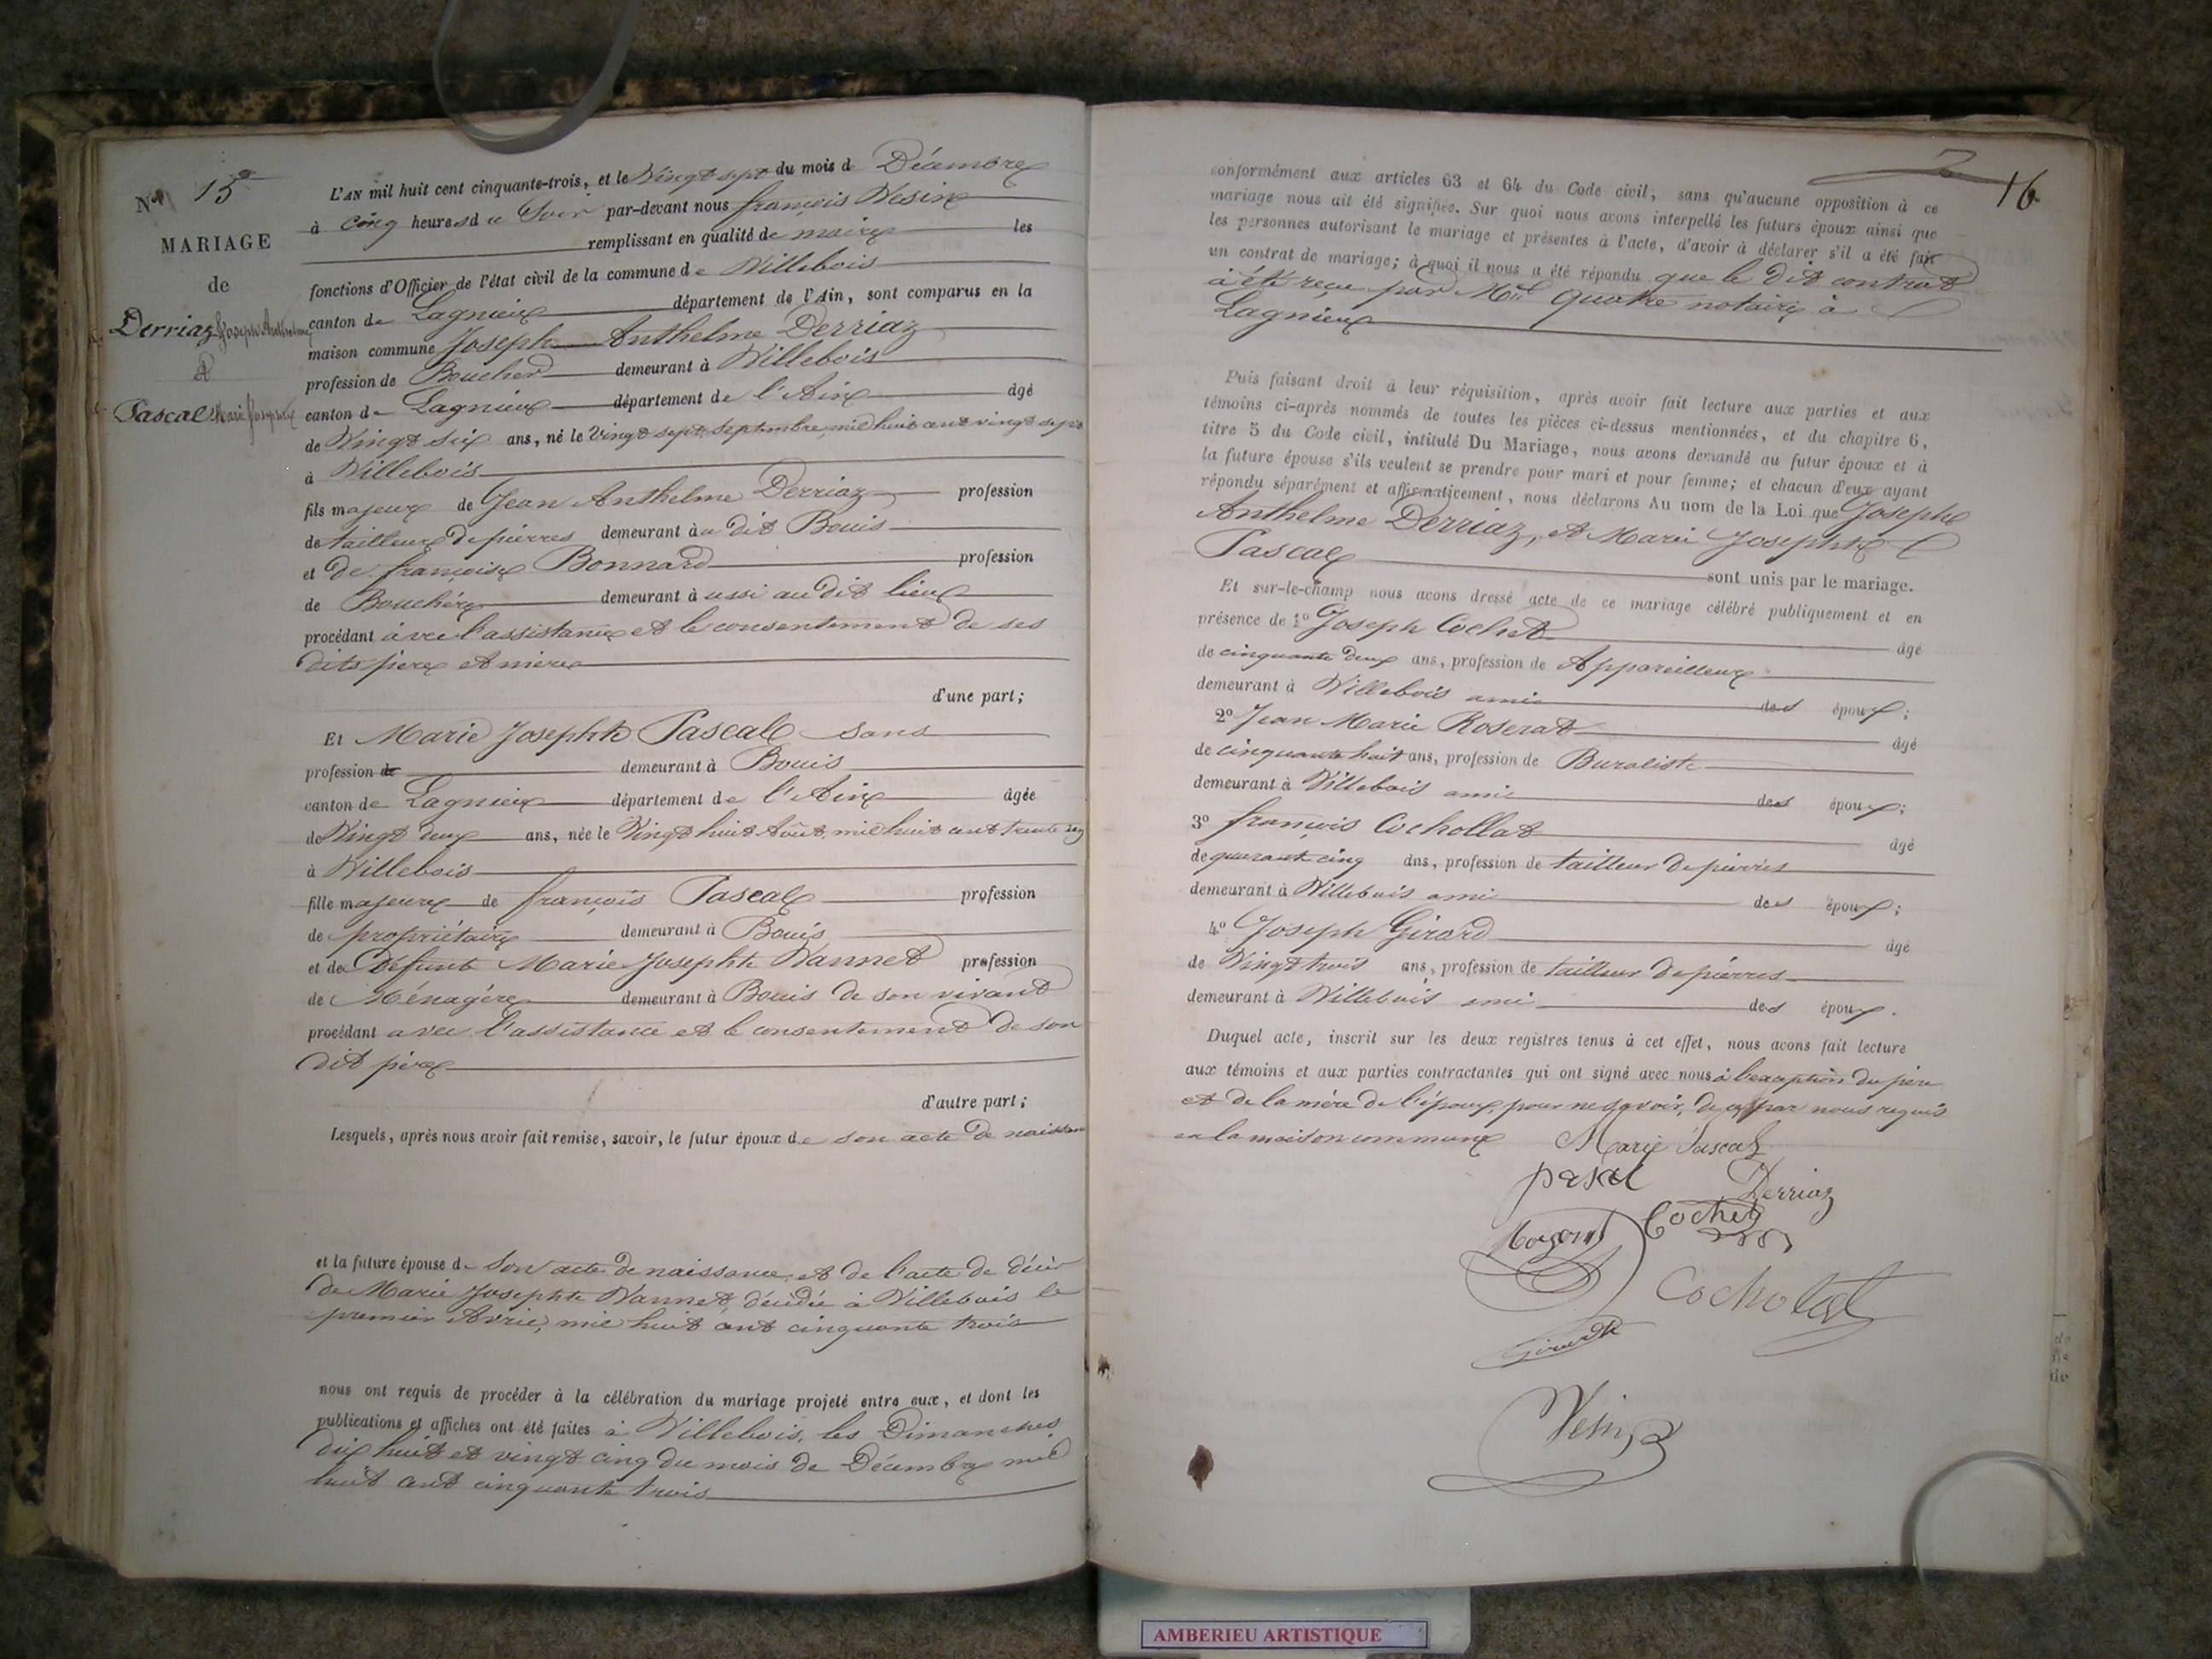 N° 15
MARIAGE
de
Derriaz Joseph Anthelme
&
Pascal Marie Josephte
L'AN mil huit cent cinquante-trois, et le Vingt sept du mois de Décembre
à cinq heures du Soir par-devant nous françois Vesin
remplissant en qualité de maire les
fonctions d'Officier de l'état civil de la commune de Villebois
canton de Lagnieu département de l'Ain, sont comparus en la
maison commune Joseph Anthelme Derriaz
profession de Boucher demeurant à Villebois
canton de Lagnieu département de l'Ain âgé
de Vingt six ans, né le Vingt sept Septembre mil huit cent vingt sept
à Villebois
fils majeur de Jean Anthelme Derriaz profession
de tailleur de pierres demeurant au dit Bouis
et de françoise Bonnard profession
de Bouchère demeurant aussi au dit lieu
procédant avec l'assistance et le consentement de ses
dits père et mère
d'une part;
Et Marie Josephte Pascal sans
profession de demeurant à Bouis
canton de Lagnieu département de l'Ain âgée
de Vingt deux ans, née le Vingt huit Août mil huit cent trente un
à Villebois
fille majeure de françois Pascal profession
de propriétaire demeurant à Bouis
et de Défunte Marie Josephte Vannet profession
de Ménagère demeurant à Bouis de son vivant
procédant avec l'assistance et le consentement de son
dit père
d'autre part;
Lesquels, après nous avoir fait remise, savoir, le futur époux de son acte de naissance
et la future épouse de Son acte de naissance, et de l'acte de décès
de Marie Josephte Vannet, décédée à Villebois le
premier Avril, mil huit cent cinquante trois
nous ont requis de procéder à la célébration du mariage projeté entre eux, et dont les
publications et affiches ont été faites à Villebois, les Dimanches
dix huit et vingt cinq du mois de Décembre mil
huit cent cinquante trois
16
conformément aux articles 63 et 64 du Code civil, sans qu'aucune opposition à ce
mariage nous ait été signifiée. Sur quoi nous avons interpellé les futurs époux ainsi que
les personnes autorisant le mariage et présentes à l'acte, d'avoir à déclarer s'il a été fait
un contrat de mariage; à quoi il nous a été répondu que le dit contrat
à été reçu par Quatre notaire à
Lagnieu
Puis faisant droit à leur réquisition, après avoir fait lecture aux parties et aux
témoins ci-après nommés de toutes les pièces ci-dessus mentionnées, et du chapitre 6,
titre 5 du Code civil, intitulé Du Mariage, nous avons demandé au futur époux et à
la future épouse s'ils veulent se prendre pour mari et pour femme; et chacun d'eux ayant
répondu séparément et affirmativement, nous déclarons Au nom de la Loi que Joseph
Anthelme Derriaz, et Marie Josephte
Pascal
sont unis par le mariage.
Et sur-le-champ nous avons dressé acte de ce mariage célébré publiquement et en
présence de 1° Joseph Cochet âgé
de cinquante deux ans, profession de Appareilleur
demeurant à Villebois ami des époux;
2° Jean Marie Roserat âgé
de cinquante huit ans, profession de Buraliste
demeurant à Villebois ami des époux;
3° françois Cochollat âgé
de quarante cinq ans, profession de tailleur de pierres
demeurant à Villebois ami des époux;
4° Joseph Girard âgé
de Vingt trois ans, profession de tailleur de pierres
demeurant à Villebois ami des époux.
Duquel acte, inscrit sur les deux registres tenus à cet effet, nous avons fait lecture
aux témoins et aux parties contractantes qui ont signé avec nous à l'exception du père
et de la mère de l'époux, pour ne savoir, de ce par nous requis
en la maison commune Marie Pascal
pascal Derriaz
Cochet
Cocholat
Vesin
AMBERIEU ARTISTIQUE